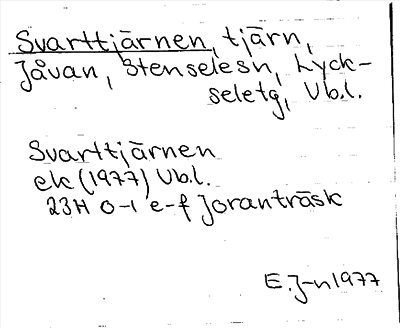 Svarttjärnen, tjärn,
Jåvan, Stenselesn, Lyck-
seletg, Vb.l.
Svarttjärnen
ek (1977) Vb.l.
23H 0-1 e-f Joranträsk
E. J-n 1977